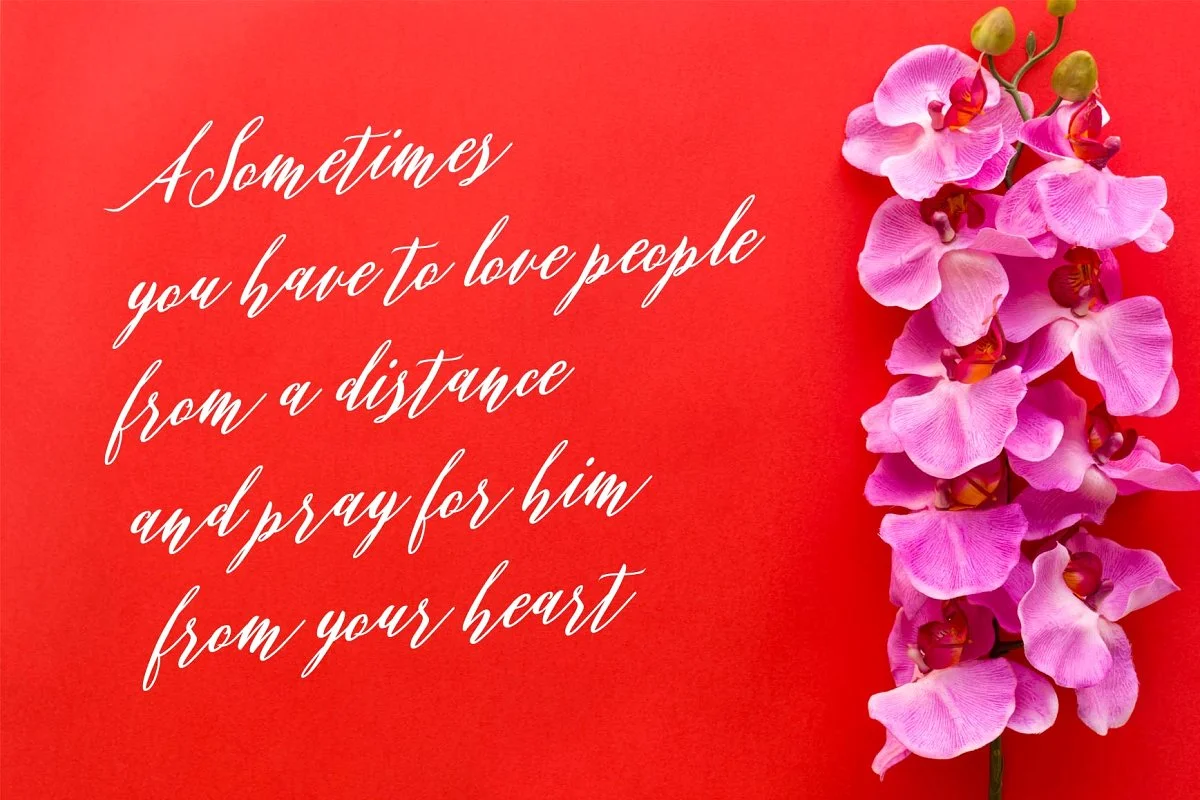 A Sometimes
you have to love people
from a distance
and pray for him
from your heart